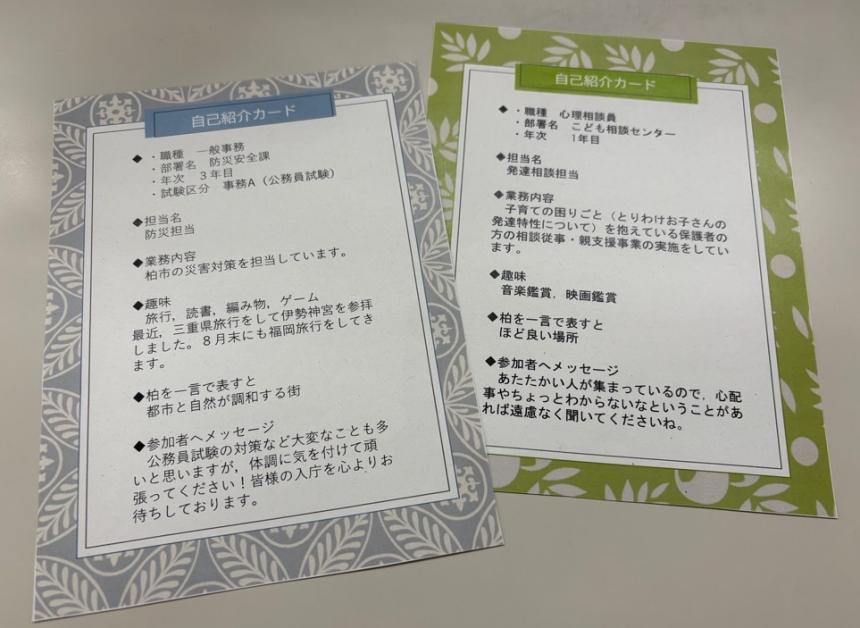 自己紹介カード
◆ ・職種　一般事務
・部署名　防災安全課
・年次　３年目
・試験区分　事務A（公務員試験）
◆担当名
防災担当
◆業務内容
柏市の災害対策を担当しています。
◆趣味
旅行，読書，編み物，ゲーム
最近，三重県旅行をして伊勢神宮を参拝
しました。８月末にも福岡旅行をしてき
ます。
◆柏を一言で表すと
都市と自然が調和する街
◆参加者へメッセージ
公務員試験の対策など大変なことも多
いと思いますが，体調に気を付けて頑
張ってください！皆様の入庁を心よりお
待ちしております。
自己紹介カード
◆ ・職種　心理相談員
・部署名　こども相談センター
・年次　１年目
◆担当名
発達相談担当
◆業務内容
子育ての困りごと（とりわけお子さんの
発達特性について）を抱えている保護者の
方の相談従事・親支援事業の実施をしてい
ます。
◆趣味
音楽鑑賞，映画鑑賞
◆柏を一言で表すと
ほど良い場所
◆参加者へメッセージ
あたたかい人が集まっているので，心配
事やちょっとわからないなということがあ
れば遠慮なく聞いてくださいね。